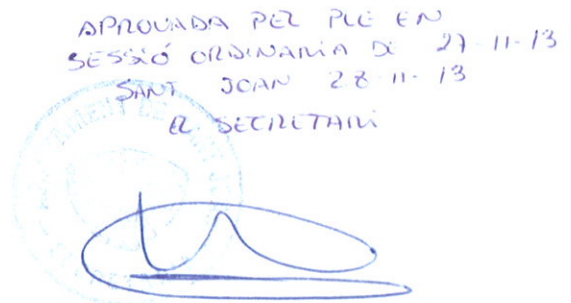 APROVADA PEL PLE EN
SESSIÓ ORDINARIA DE 27-11-13
SANT JOAN 28-11-13
EL SECRETARI